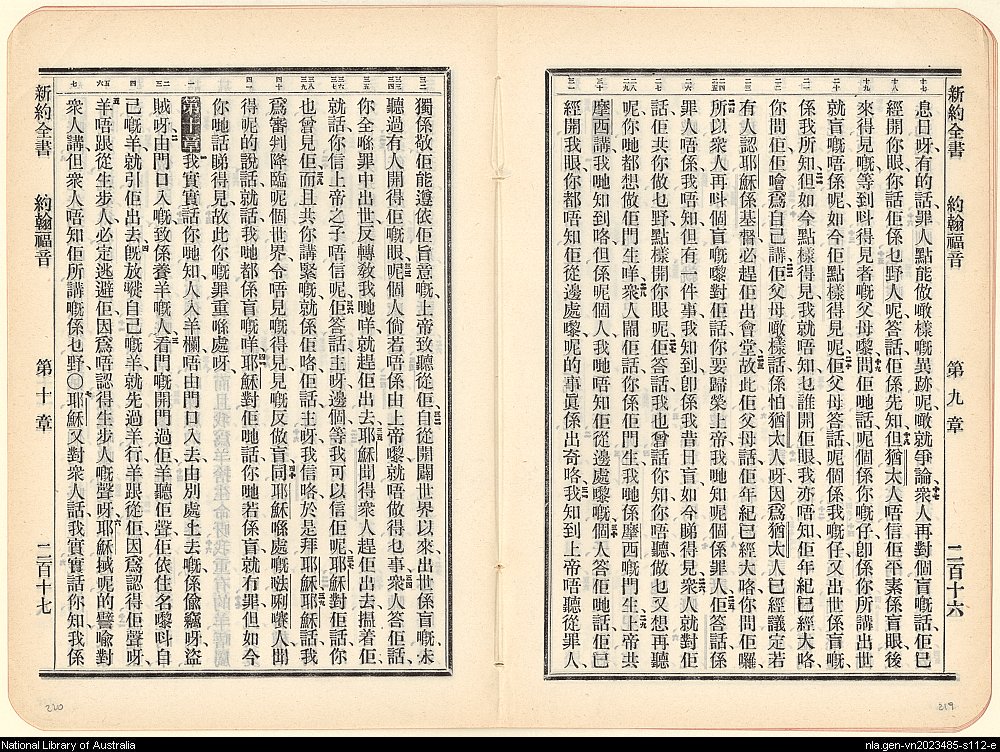 新約全書 約翰福音 第九章 二百十六
息日呀有的話罪人點能做噉樣嘅異跡呢噉就爭論衆人再對個盲嘅話佢已
經開你眼你話佢係乜野人呢答話佢係先知但猶太人唔信佢平素係盲眼後
來得見嘅等到呌得見者嘅父母嚟問佢哋話呢個係你嘅仔卽係你所講出世
就盲嘅唔係呢如今佢點樣得見呢佢父母答話呢個係我嘅仔又出世係盲嘅
係我所知但如今點樣得見我就唔知乜誰開佢眼我亦唔知佢年紀已經大咯
你問佢佢噲爲自己講佢父母噉樣話係怕猶太人呀因爲猶太人已經議定若
有人認耶穌係基督必趕佢出會堂故此佢父母話佢年紀已經大咯你問佢囉
所以衆人再呌個盲嘅嚟對佢話你要歸榮上帝我哋知呢個係罪人佢答話係
罪人唔係我唔知但有一件事我知到卽係我昔日盲如今睇得見衆人就對佢
話佢共你做乜野點樣開你眼呢佢答話我也曾話你知你唔聽做乜又想再聽
呢你哋都想做佢門生咩衆人鬧佢話你係佢門生我哋係摩西嘅門生上帝共
摩西講我哋知到咯但係呢個人我哋唔知佢從邊處嚟嘅個人答佢哋話佢已
經開我眼你都唔知佢從邊處嚟呢的事眞係出奇咯我知到上帝唔聽從罪人
219
獨係敬佢能遵依佢旨意嘅上帝致聽從佢自從開闢世界以來出世係盲嘅未
聽過有人開得佢嘅眼呢個人倘若唔係由上帝嚟就唔做得乜事衆人答佢話
你全喺罪中出世反轉敎我哋咩就趕佢出去耶穌聞得衆人趕佢出去搵着佢
就話你信上帝之子唔信呢佢答話主呀邊個等我可以信佢呢耶穌對佢話你
也曾見佢而且共你講緊嘅就係佢咯佢話主呀我信咯於是拜耶穌耶穌話我
爲審判降臨呢個世界令唔見嘅得見見嘅反做盲同耶穌喺處嘅𠵽唎㘔人聞
得呢的說話就話我哋都係盲嘅咩耶穌對佢哋話你若係盲就有罪但如今
你哋話睇得見故此你嘅罪重喺處呀
第十章我實實話你哋知人入羊欄唔由門口入去由別處上去嘅係偸竊呀盜
賊呀由門口入嘅致係養羊嘅人看門嘅開門過佢羊聽佢聲佢依住名嚟呌自
己嘅羊就引佢出去旣放嘥自己嘅羊就先過羊行羊跟從佢因爲認得佢聲呀
羊唔跟從生步人必定逃避佢因爲唔認得生步人嘅聲呀耶穌摵呢的譬喩對
衆人講但衆人唔知佢所講嘅係乜野〇耶穌又對衆人話我實實話你知我係
新約全書 約翰福音 第十章 二百十七
220
National Library of Australia
nla.gen-vn2023485-s112-e